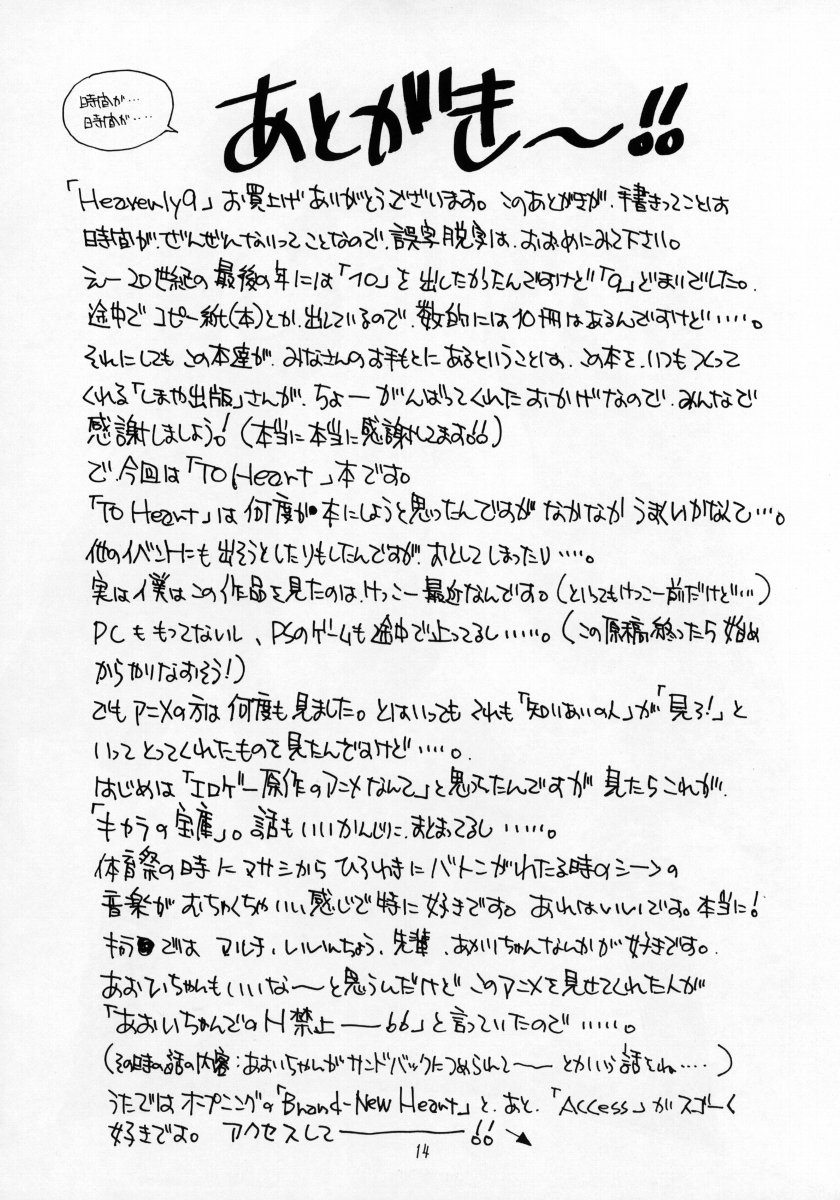 時間が…
時間が‥‥
あとがき〜!!
「Heavenly9」お買上げありがとうございます。このあとがきが、手書きってことは
時間が、ぜんぜんないってことなので、誤字脱字は、おおめにみて下さい。
えー20世紀の最後の年には「10」を出したかったんですけど「9」どまりでした。
途中でコピー紙(本)とか、出しているので、数的には10冊はあるんですけど‥‥。
それにしてもこの本達が、みなさんのお手もとにあるということは、この本を、いつもつくって
くれる「しまや出版」さんが、ちょーがんばってくれたおかげなので、みんなで
感謝しましょう!(本当に本当に感謝してます!!)
で、今回は「To Heart」本です。
「To Heart」は何度か本にしようと思ったんですがなかなかうまくいかなくて…。
他のイベントにも出そうとしたりもしたんですが、おとしてしまったり‥‥。
実は僕はこの作品を見たのは、けっこー最近なんです。(といってもけっこー前だけど…)
PCももってないし、PSのゲームも途中で止ってるし‥‥。(この原稿終ったら始め
からやりなおそう!)
でもアニメの方は何度も見ました。とはいってもそれも「知りあいの人」が「見ろ!」と
いってとってくれたものを見たんですけど‥‥。
はじめは「エロゲー原作のアニメなんて」と思ってたんですが見たらこれが、
「キャラの宝庫」。話もいいかんじに、まとまってるし‥‥。
体育祭の時にマサシからひろゆきにバトンがわたる時のシーンの
音楽がむちゃくちゃいい感じで特に好きです。あれはいいです。本当に!
キャラでは マルチ、いいんちょう、先輩、あかりちゃんなんかが好きです。
あおいちゃんもいいな〜と思うんだけどこのアニメを見せてくれた人が
「あおいちゃんでのH禁止――!!」と言っていたので‥‥。
(その時の話の内容:あおいちゃんがサンドバックにつめられて〜とかいう話をね‥‥)
うたではオープニングの「Brand-New Heart」と、あと、「Access」がスゴーく
好きです。 アクセスして――――!!
14